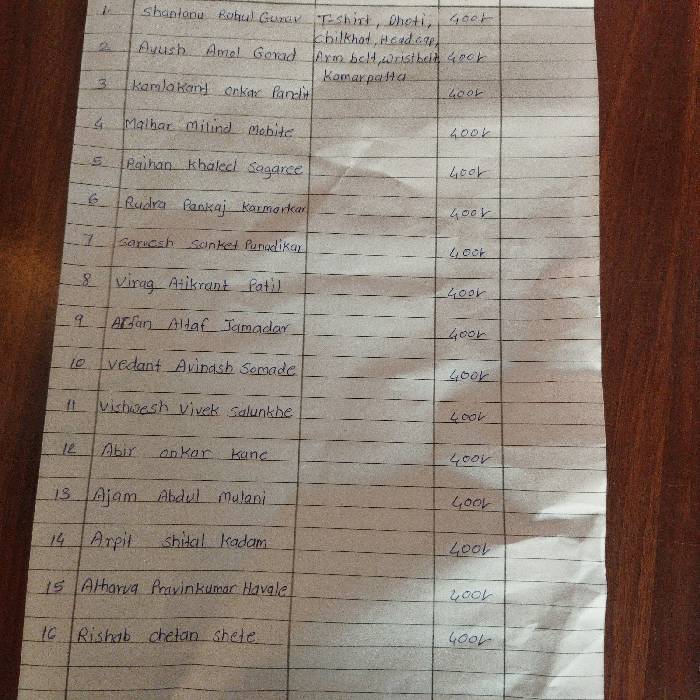 1. Shantanu Rahul Gurav T-shirt, Dhoti, 400/-
Chilkhat, Headcap,
2 Ayush Amol Gorad Arm belt, wristbelt 400/-
Kamarpatta
3 Kamlakant onkar Pandit 400/-
4 Malhar Milind Mohite 400/-
5 Raihan Khaled Sagaree 400/-
6 Rudra Pankaj Karmarkar 400/-
7 Sarvesh Sanket Punadikar 400/-
8 Virag Atikrant Patil 400/-
9 Arfan Altaf Jamadar 400/-
10 Vedant Avinash Somade 400/-
11 Vishwesh Vivek Salunkhe 400/-
12 Abir onkar Kane 400/-
13 Ajam Abdul Mulani 400/-
14 Arpit shital Kadam 400/-
15 Atharva Pravinkumar Havale 400/-
16 Rishab chetan shete 400/-